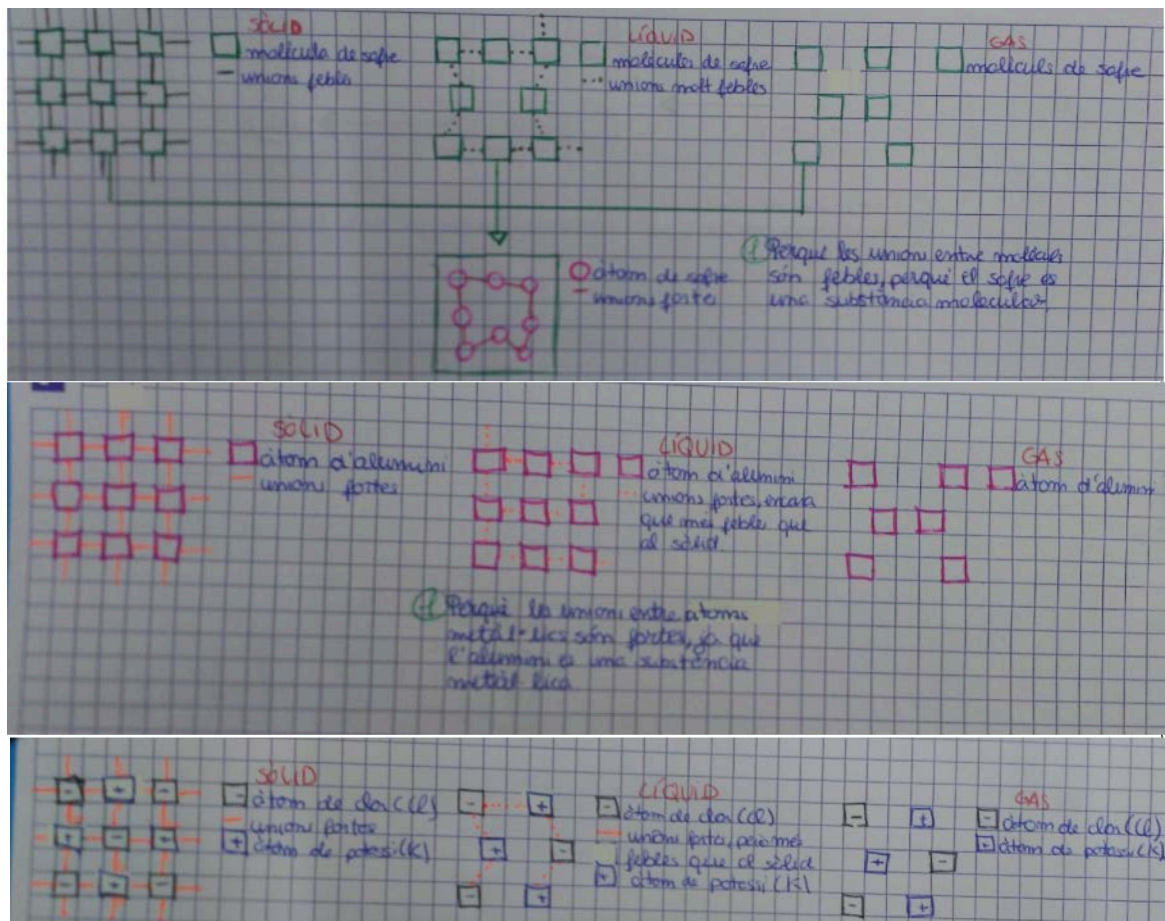 SÒLID
molècula de sofre
unions febles
LÍQUID
molècules de sofre
unions molt febles
GAS
molècules de sofre
àtom de sofre
unions forts
① Perquè les unions entre molècules
són febles, perquè el sofre és
una substància molecular
SÒLID
àtom d'alumini
unions fortes
LÍQUID
àtom d'alumini
unions fortes, encara
que més feble que
al sòlid.
GAS
àtom d'alumini
Perquè les unions entre àtoms
metàl·lics són fortes, ja que
l'alumini és una substància
metàl·lica
- + -
+ - +
- + -
SÒLID
- àtom de clor (Cl)
unions fortes
+ àtom de potassi (K)
- +
+ -
- +
LÍQUID
- àtom de clor (Cl)
unions fortes, però més
febles que al sòlid
+ àtom de potassi (K)
- +
+ -
- +
GAS
- àtom de clor (Cl)
+ àtom de potassi (K)